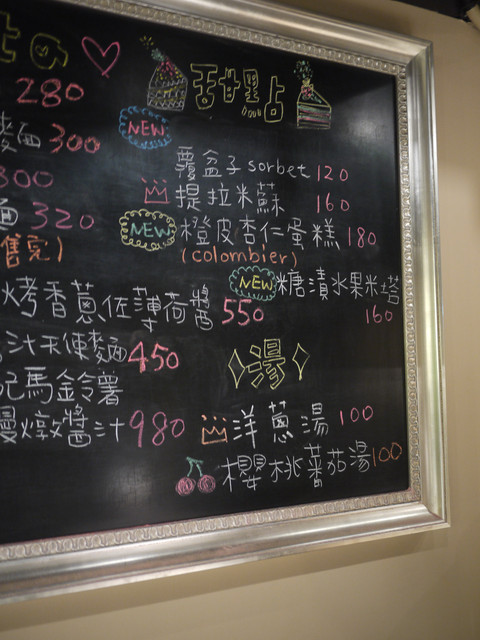 280
300
300
320
售完)
烤香蔥佐薄荷醬 550
汁天使麵 450
馬鈴薯
燉醬汁 980
甜點
NEW
覆盆子sorbet 120
提拉米蘇 160
NEW 橙皮杏仁蛋糕 180
(colombier)
NEW 糖漬水果米塔
160
湯
洋蔥湯 100
櫻桃蕃茄湯 100